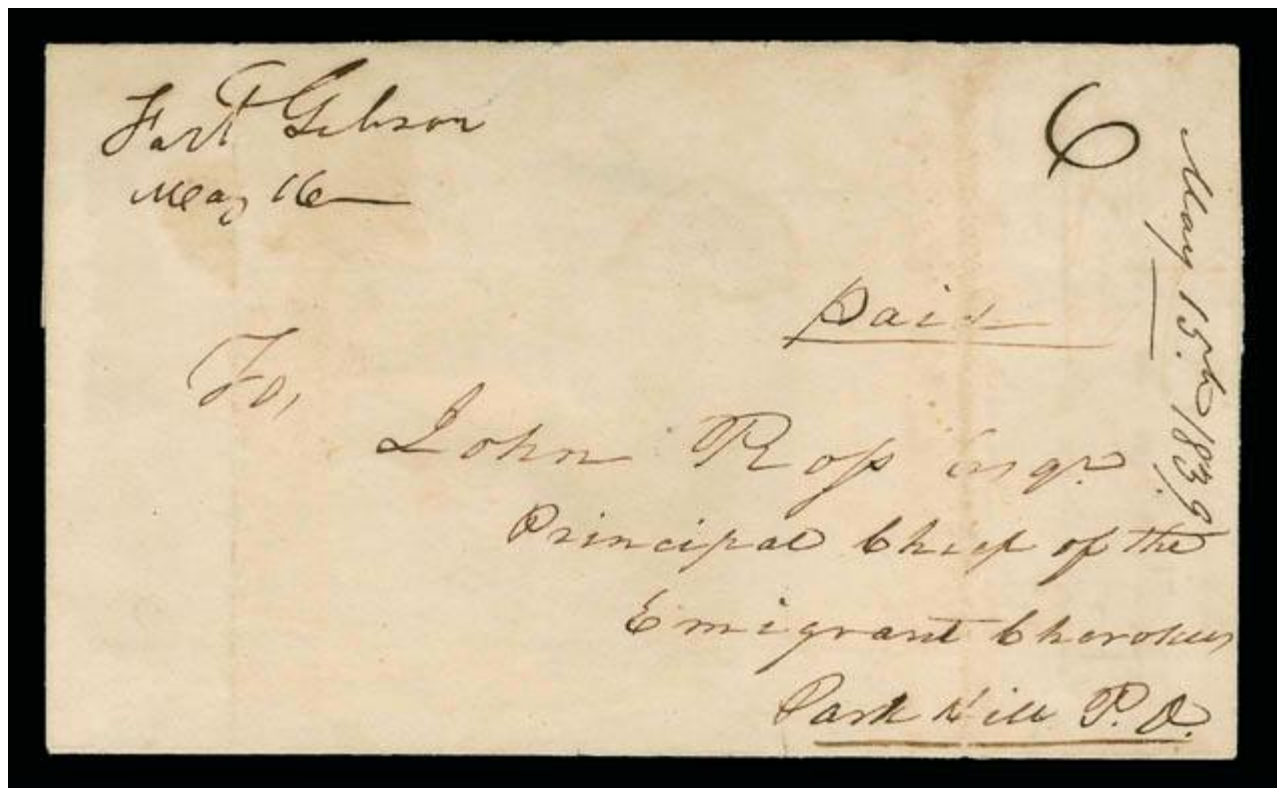 Fort Gibson
May 16
6
May 15th 1839
Paid
To,
John Ross Esqr.
Principal Chief of the
Emigrant Cherokees
Park Hill P. O.